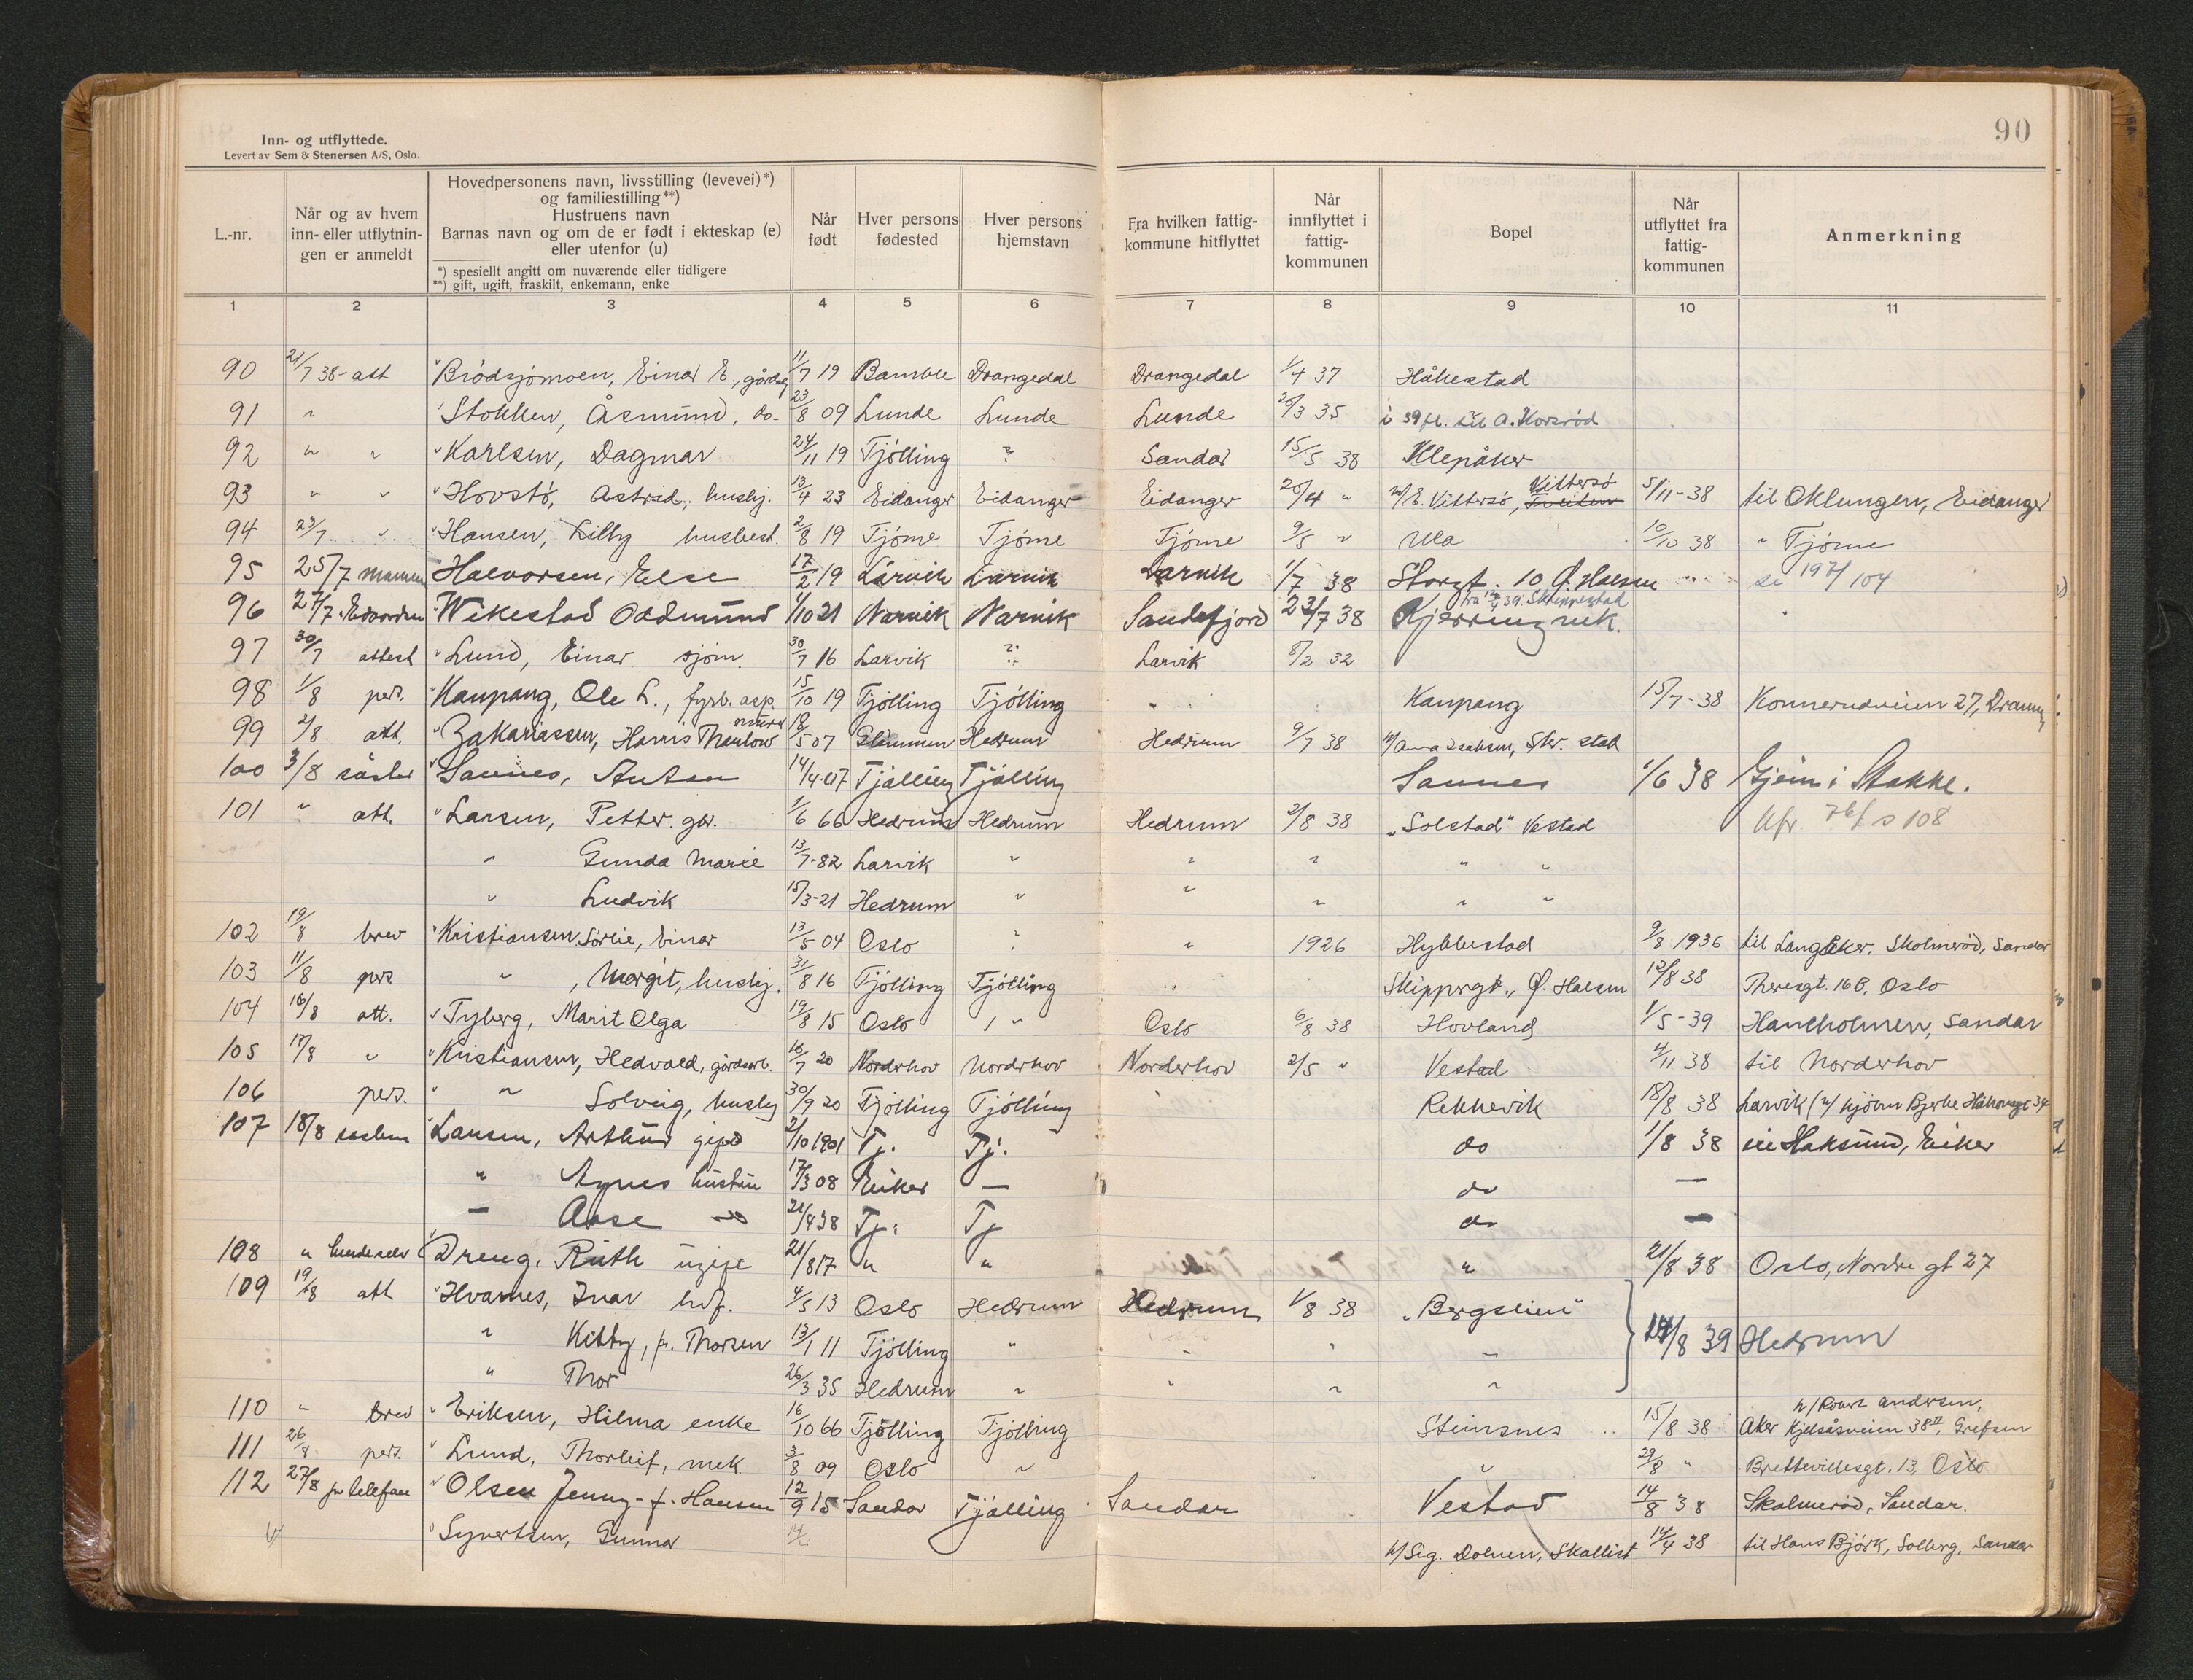 Inn- og utflyttede.
Levert av Sem & Stenersen A/S, Oslo.
90
L.-nr.
Når og av hvem inn- eller utflytnin- gen er anmeldt
Hovedpersonens navn, livsstilling (levevei)*)
og familiestilling**)
Hustruens navn
Barnas navn og om de er født i ekteskap (e)
eller utenfor (u)
*) spesiellt angitt om nuværende eller tidligere
**) gift, ugift, fraskilt, enkemann, enke
Når født
Hver persons fødested
Hver persons hjemstavn
Fra hvilken fattig- kommune hitflyttet
Når innflyttet i fattig- kommunen
Bopel
Når utflyttet fra fattig- kommunen
Anmerkning
1 2 3 4 5 6 7 8 9 10 11
90 21/7 38 - att Brødsjømoen, Einar E., 11/7 19 Bamble Drangedal Drangedal 1/4 37 Håkestad
91 " Stokken, Åsmund, do- 23/8 09 Lunde Lunde Lunde 20/3 35 i 39 fl. til A. Korsrød
92 " " Karlsen, Dagmar 24/11 19 Tjølling ? Sandar 15/5 38 Klepåker
93 " " Hovstø, Astrid, hushj. 13/4 23 Eidanger Eidanger Eidanger 20/4 " m/E. Vittersø, Tveiten Vittersø 5/11-38 til Oklungen, Eidanger
94 23/7 " Hansen, Lilly husbest. 2/8 19 Tjøme Tjøme Tjøme 9/5 " Ula 10/10 38 " Tjøme
95 25/7 Halvorsen, Else 17/2 19 Larvik Larvik Larvik 1/7 38 Storgt. 10 Ø. Halsen se 197/104
96 27/7 Wikestad Oddmund 1/10 21 Narvik Narvik Sandefjord 23/7 38 Kjerringvik. fra 39. Skrippestad
97 30/7 attest Lund, Einar sjøm. 30/7 16 Larvik ? Larvik 8/2 32
98 1/8 pers. Kaupang, Ole L., fyrb. asp. 15/10 19 Tjølling Tjølling " Kaupang 15/7-38 Konnerudveien 27,
99 2/8 att. Zakariassen, Harris Thanlow murer 18/5 07 Glemmen Hedrum Hedrum 9/7 38 Skr. stad
100 3/8 Sannes, Anton 14/4-07 Tjølling Tjølling Sannes 1/6 38 Gjein i Stokke.
101 " att. Larsen, Petter. gbr. 1/6 66 Hedrum Hedrum Hedrum 2/8 38 "Solstad" Vestad kfr. 76/s 108
" Gunda Marie 13/7-82 Larvik " " " " "
" Ludvik 15/3-21 Hedrum " " " " "
102 19/8 brev Kristiansen Sørlie, Einar 13/5 04 Oslo ? " 1926 Hybbestad 9/8 1936 til Langåker, Skolmerød, Sandar
103 11/8 pers. " , Margit, hushj. 31/8 16 Tjølling Tjølling Skippergt., Ø. Halsen 12/8 38 Theresgt. 16B, Oslo
104 16/8 att. Tyberg, Marit Olga 19/8 15 Oslo " Oslo 6/8 38 Hovland 1/5-39 Haukholmen, Sandar
105 17/8 " Kristiansen, Hedvald, gårdsarb. 16/7 20 Norderhov Norderhov Norderhov 2/5 " Vestad 4/11 38 til Norderhov
106 pers. " " Solveig, hushj 30/9 20 Tjølling Tjølling Rekkevik 18/8 38 Larvik
107 18/8 Larsen, Arthur gift 2/10 1901 Tj. Tj. do 1/8 38 Haksund, Eiker
" Agnes hustru 17/3 08 Eiker — do —
— Aase 21/4 38 Tj. Tj do —
108 " Dreng, Ruth ugift 21/8 17 " " " 21/8 38 Oslo, Nordre gt 27
109 19/8 att Hvarnes, Ivar hvf. 4/5 13 Oslo Hedrum Hedrum 1/8 38 "Bergslien"
" Kitty, f. Thorsen 13/1 11 Tjølling " " " " 24/8 39 Hedrum
" Thor 26/3 35 Hedrum " " " "
110 " brev Eriksen, Hilma enke 16/10 66 Tjølling Tjølling Steinsnes 15/8 38 h/Roart Andersen,
Aker Kjelsåsveien 38 II, Grefsen
111 26/8 pers. Lund, Thorleif, mek. 3/8 09 Oslo " " 29/8 " Brettevillesgt. 13, Oslo
112 27/8 pr telefon Olsen Jenny - f. Hansen 12/9 15 Sandar Tjølling Sandar Vestad 14/8 38 Skolmerød, Sandar.
Syvertsen, Gunnar h/Sig. Dolven, Skallist 14/4 38 til Hans Bjørk, Solberg, Sandar